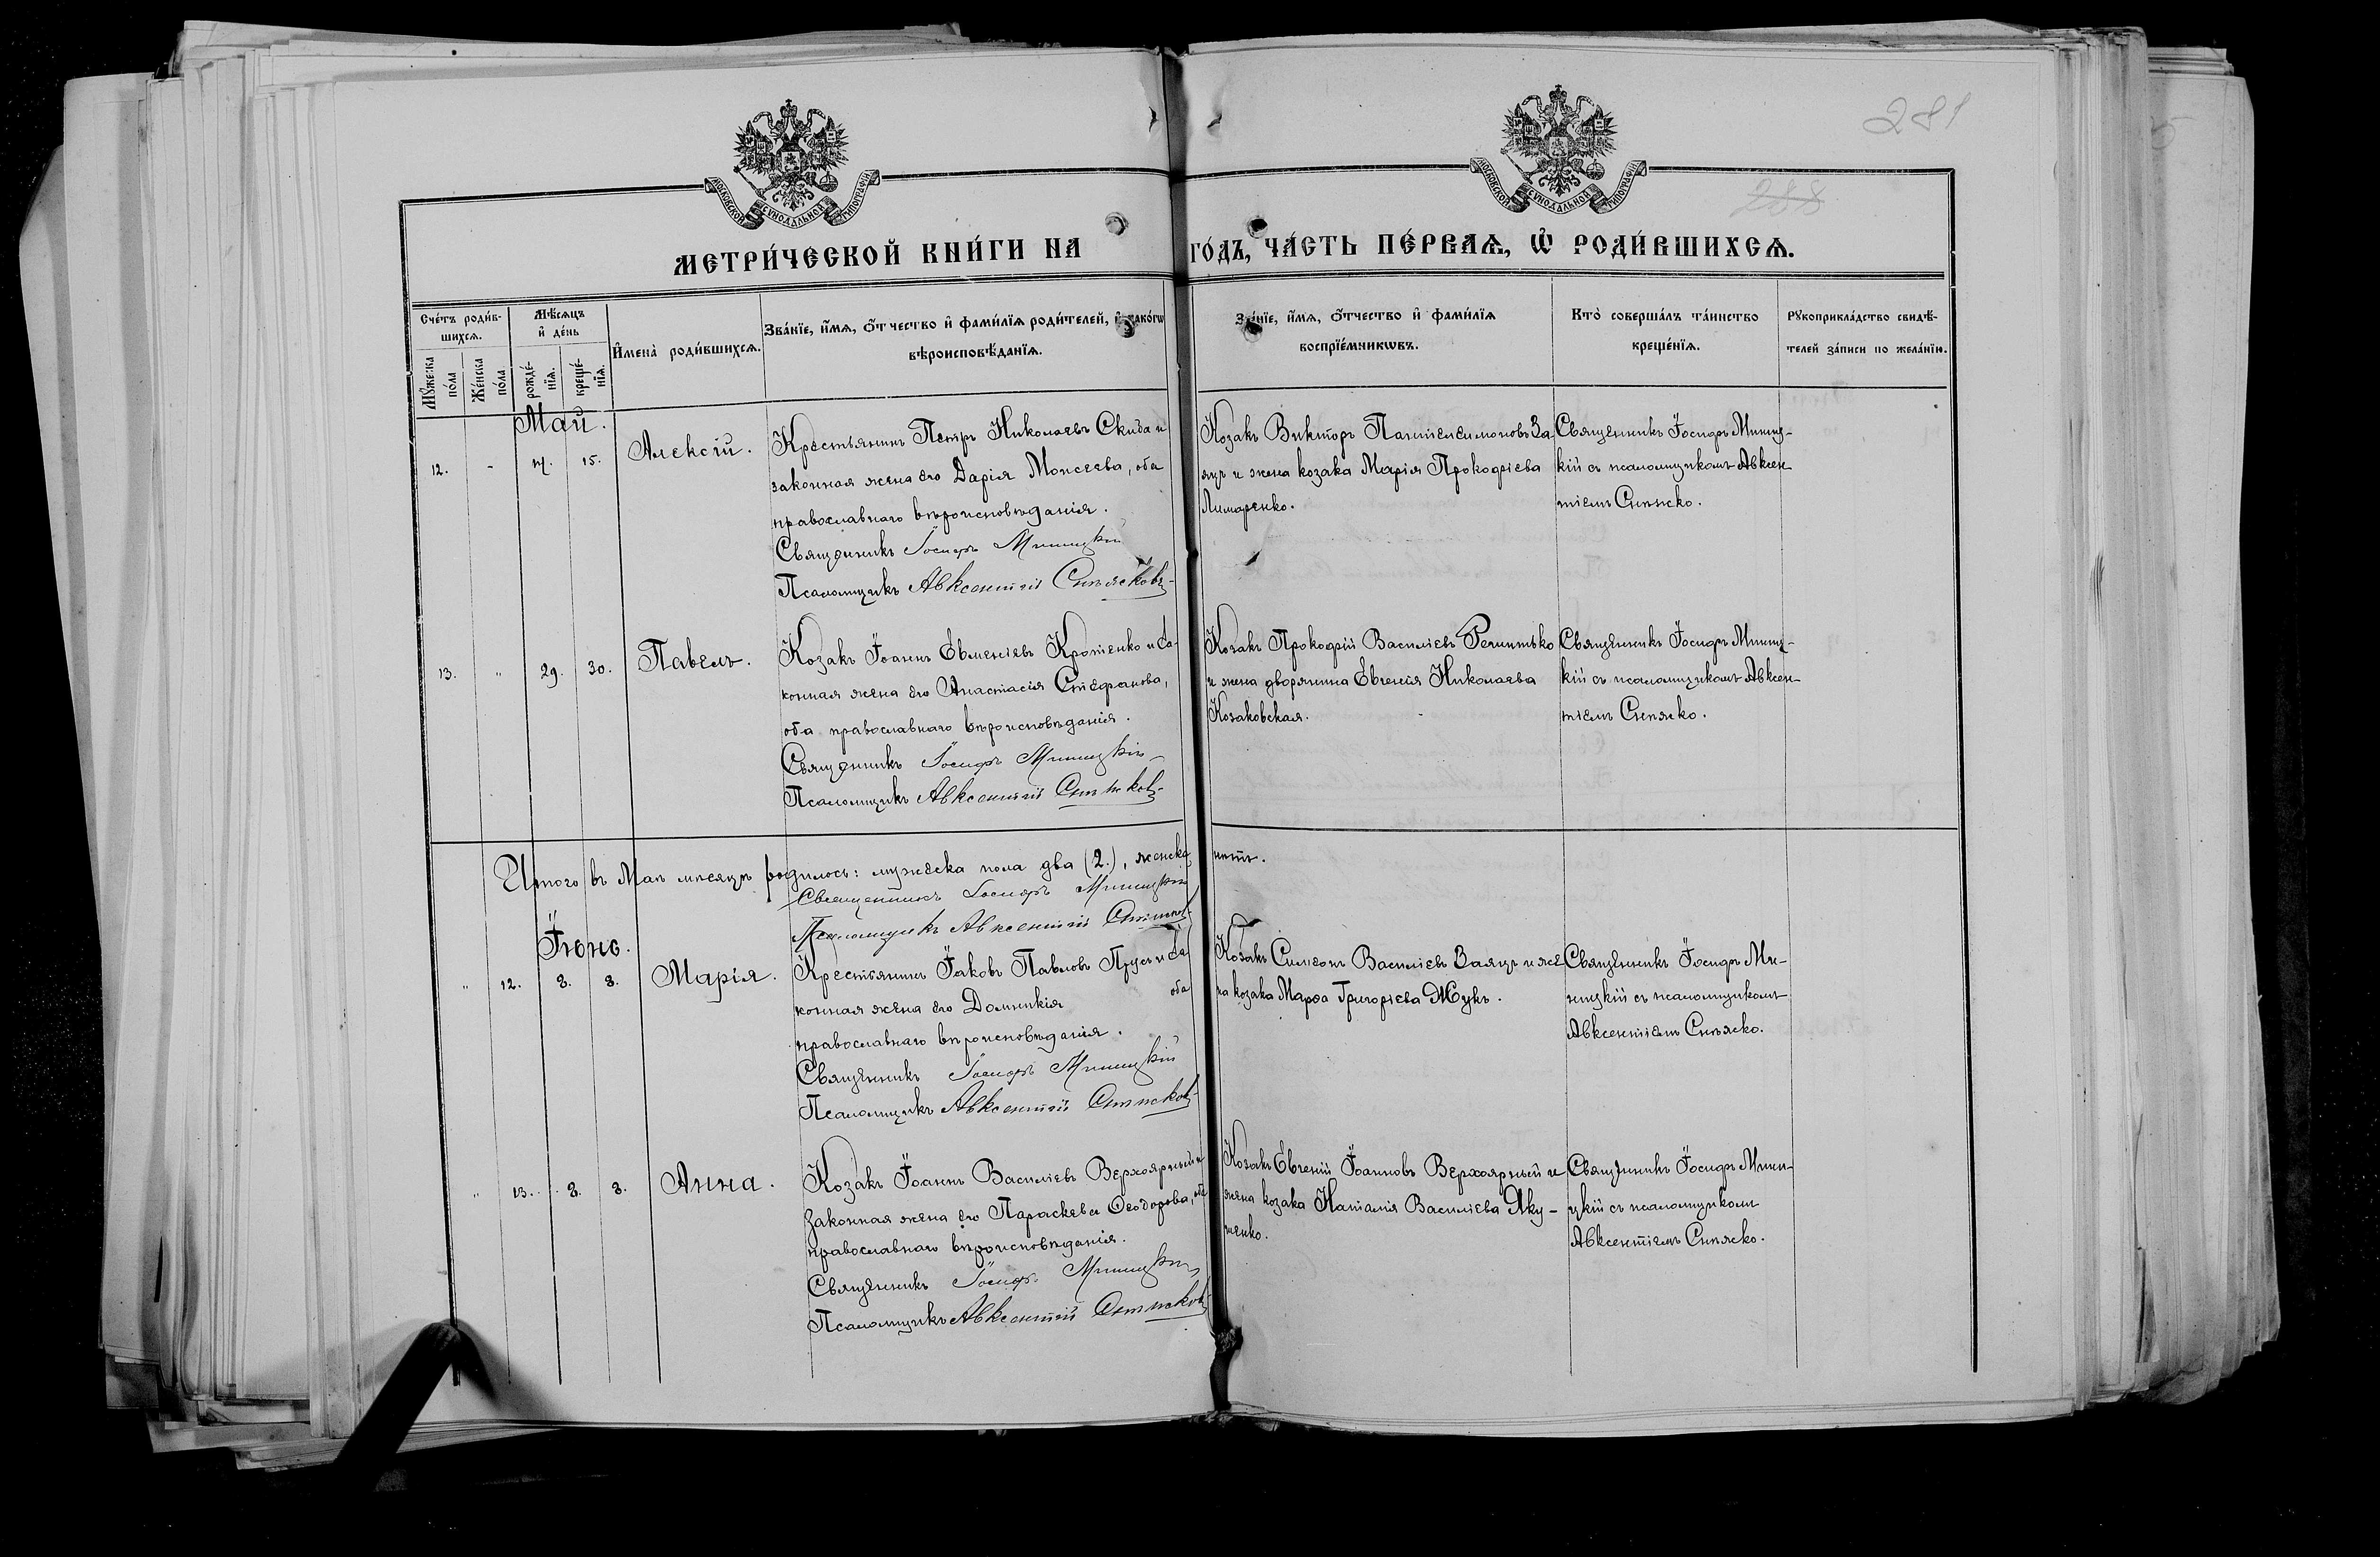 281
288
МОСКОВСКОЙ СѴНОДАЛЬНОЙ ТИПОГРАФІИ
МОСКОВСКОЙ СѴНОДАЛЬНОЙ ТИПОГРАФІИ
МЕТРИ́ЧЕСКОЙ КНИ́ГИ НА ГО́ДЪ, ЧА́СТЬ ПЕ́РВАѦ, Ѽ РОДИ́ВШИХСѦ.
Сче́тъ роди́в-
шихсѧ.
Мꙋ́жеска
по́ла
Же́нска
по́ла
Мѣ́сѧцъ
и҆ де́нь
рожде́-
нїѧ.
креще́-
нїѧ.
И҆мена̀ роди́вшихсѧ.
Зва́нїе, и҆́мѧ, ѻ҆́тчество и҆ фами́лїѧ роди́телей, и҆ како́гѡ
вѣроисповѣ́данїѧ.
Зва́нїе, и҆́мѧ, ѻ҆́тчество и҆ фами́лїѧ
воспрїе́мникѡвъ.
Кто̀ соверша́лъ та́инство
креще́нїѧ.
Рꙋкоприкла́дство свидѣ́-
телей за́писи по жела́нїю.
Май.
12. - 14. 15. Алексій.
Крестьянинъ Петръ Николаевъ Скиба и
законная жена его Дарія Моисеева, оба
православнаго вѣроисповѣданія.
Священникъ Іосифъ Миницкій
Псаломщикъ Авксентій
Козакъ Викторъ Пантелеимоновъ За-
яцъ и жена козака Марія Прокофіева
Лимаренко.
Священникъ Іосифъ Миниц-
кій съ псаломщикомъ Авксен
тіемъ
13. " 29. 30. Павелъ.
Козакъ Іоаннъ Евменіевъ Кротенко и за-
конная жена его Анастасія Стефанова,
оба православнаго вѣроисповѣданія.
Священникъ Іосифъ Миницкій
Псаломщикъ Авксентій
Козакъ Прокофій Василіевъ
и жена дворянина Евгенія Николаева
Козаковская.
Священникъ Іосифъ Миниц-
кій съ псаломщикомъ Авксен-
тіемъ
Итого въ Маѣ мѣсяцѣ родилось: мужеска пола два (2.), женска нѣтъ.
Священникъ Іосифъ Миницкій
Псаломщикъ Авксентій
Іюнь.
" 12. 8. 8. Марія.
Крестьянинъ Іаковъ Павловъ Прусъ и за-
конная жена его Домникія оба
православнаго вѣроисповѣданія.
Священникъ Іосифъ Миницкій
Псаломщикъ Авксентій
Козакъ Симеонъ Василіевъ Заяцъ и же-
на козака Марѳа Григоріева Жукъ.
Священникъ Іосифъ Ми-
ницкій съ псаломщикомъ
Авксентіемъ
" 13. 8. 8. Анна.
Козакъ Іоаннъ Василіевъ Верхоярный и
законная жена его Параскева Ѳеодорова, оба
православнаго вѣроисповѣданія.
Священникъ Іосифъ Миницкій
Псаломщикъ Авксентій
Козакъ Евгеній Іоанновъ Верхоярный и
жена козака Наталія Василіева Яку-
тенко.
Священникъ Іосифъ Мини-
цкій съ псаломщикомъ
Авксентіемъ